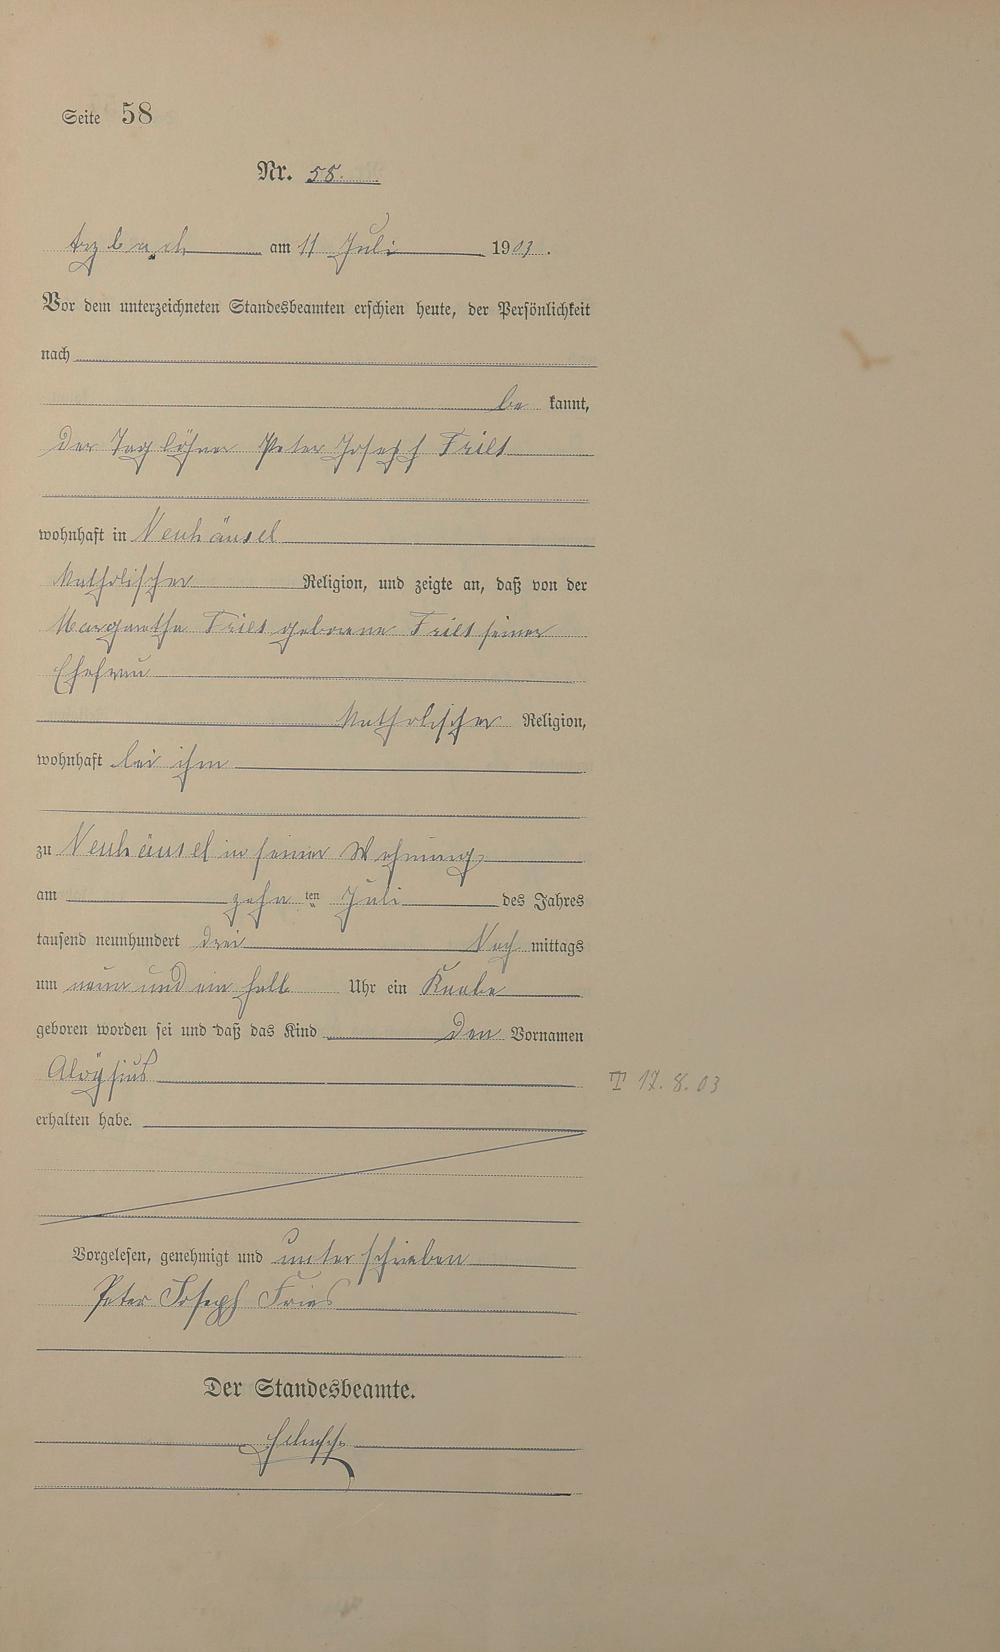 Seite 58
Nr. 58.
Arzbach am 11 Juli 1903.
Vor dem unterzeichneten Standesbeamten erschien heute, der Persönlichkeit
nach
be kannt,
der Taglöhner Peter Joseph Fries
wohnhaft in Neuhäusel
katholischer Religion, und zeigte an, daß von der
Margaretha Fries geborene Fries seiner
Ehefrau
katholischer Religion,
wohnhaft bei ihm
zu Neuhäusel in seiner Wohnung
am zehn ten Juli des Jahres
tausend neunhundert drei Nach mittags
um neun und ein halb Uhr ein Knabe
geboren worden sei und daß das Kind den Vornamen
Aloÿsius
T 17. 8. 03
erhalten habe.
Vorgelesen, genehmigt und unterschrieben
Peter Joseph Fries
Der Standesbeamte.